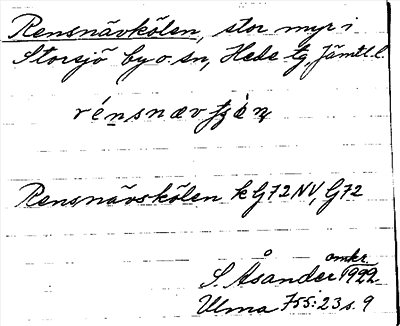 Rensnävkölen, stor myr i
Storsjö by o. sn, Hede tg, Jämtl. l.
Rensnävskölen k G72 NV, G72
S. Åsander omkr. 1922
Ulma 755:23 s. 9